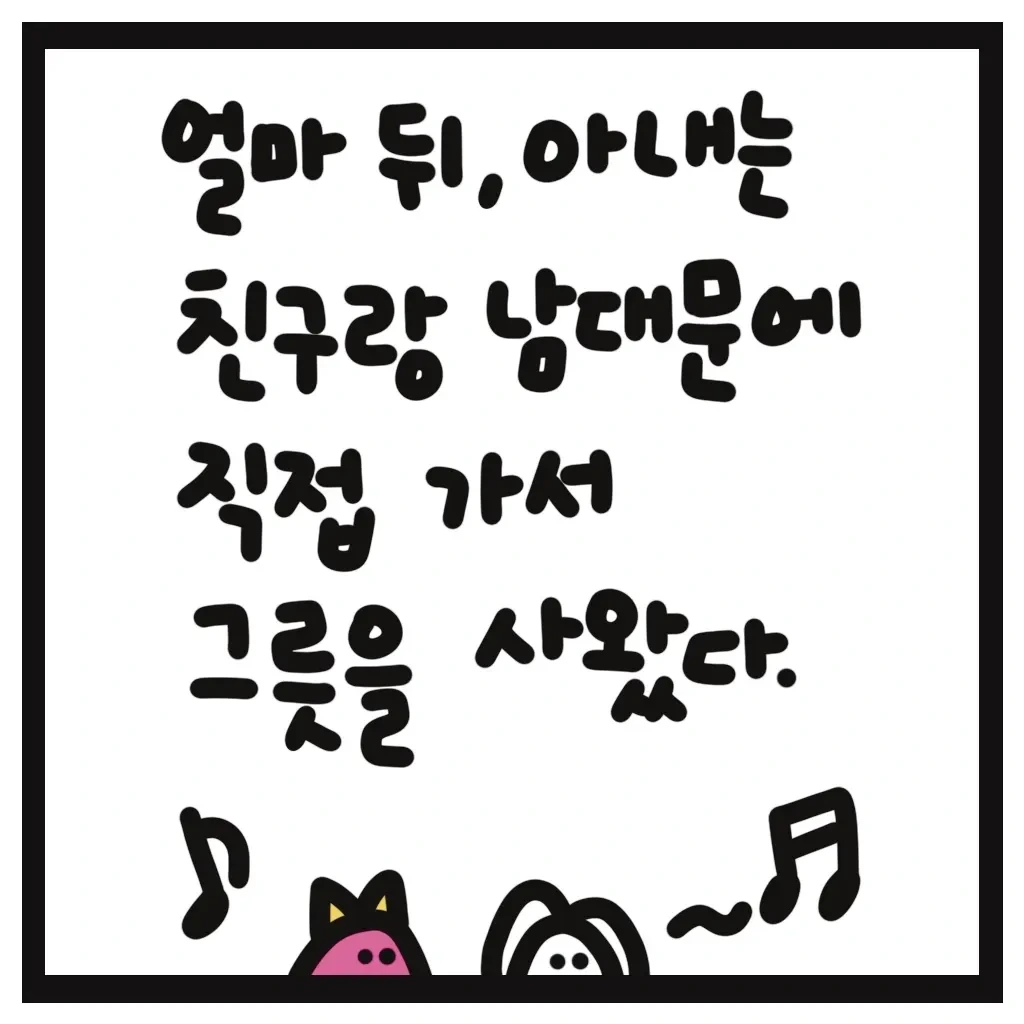 얼마 뒤, 아내는
친구랑 남대문에
직접 가서
그릇을 사왔다.